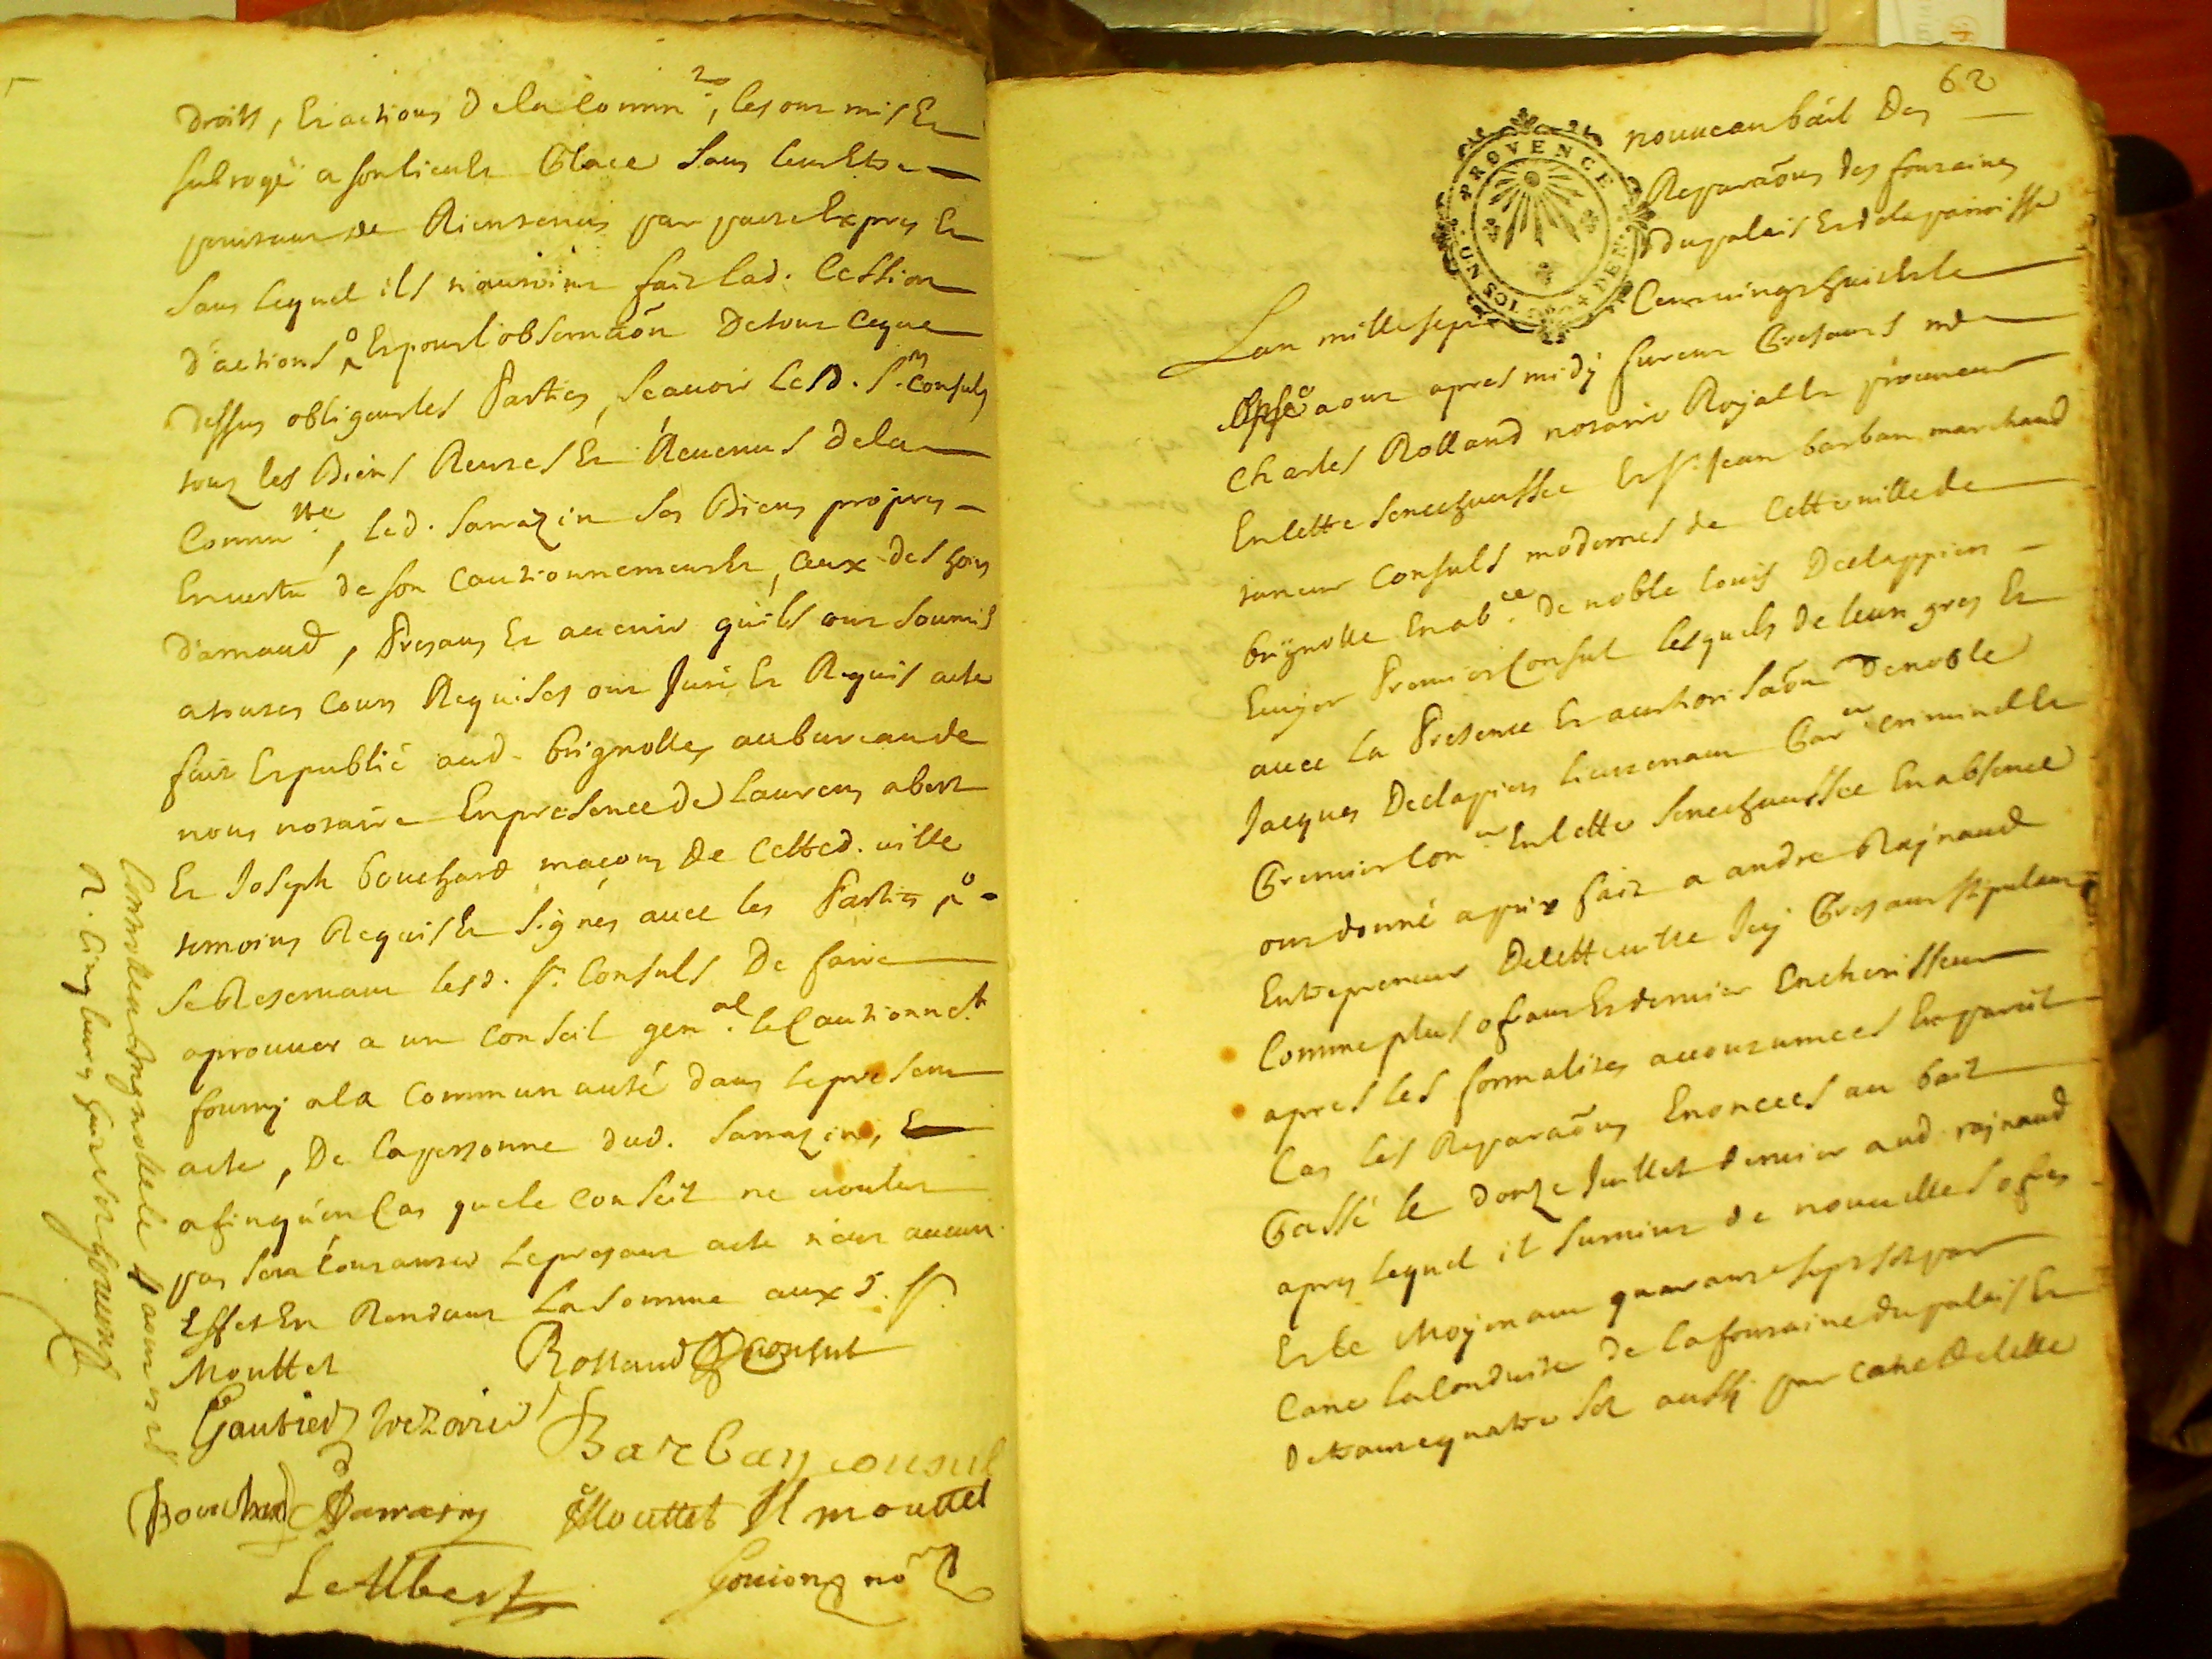 droits, et actions de la comm.té, les ont mis et
subrogé a son lieu et place sans leur etre
pourtant de rien tenus par pacte expres et
sans lequel ils n'auroint fait lad. cession
d'actions, et pour l'observaõn de tout ce que
dessus obligent les Parties, scavoir lesd. srs. consuls
tous les Biens Rentes et Revenus de la
Comm.té, led. Sarrazin ses Biens propres
en vertu de son cautionnement et, ceux des hoirs
d'arnaud, Presans et avenir qu'ils ont soumis
a toutes cours Requises ont Juré et Requis acte
fait et publié aud. brignolles au bureau de
nous notaire En presence de Laurens abert
et Joseph bouchard maçons de cetted. ville
temoins Requis et signés avec les Parties
se Reservant lesd. srs. Consuls De faire
aprouver a un Conseil gen.al le Cautionne.t
fourny a la Communauté dans le present
acte, De la personne dud. Sarrazin,
afin qu'en Cas que le conseil ne voulut
pas s'en Contanter le presant acte n'ait aucun
Effet En Rendant la somme aux d. srs.
Mouttet
Rolland consul
Gautier trezorier
Barban consul
Bouchard Sarrasin
Mouttet
H mouttet
L Albert
Goujon nore
Controllé a Brignolle le aoust
R. cinq livres huit sols Goujon
62
nouveau bail Des
Reparaõns des fontaines
du palais et de la paroisse
PROVENCE
DEN
SOLS
Lan mille sept Cent vingt huit et le
aout apres midy furent Presants me
Charles Rolland notaire Royal et procureur
En cette Senechaussée et sr. Jean barban marchand
taneur Consuls modernes de cette ville de
brignolle En ab.ce de noble Louis Declappiers
Premier Consul lesquels de leur gres et
avec la Presence et authorisaõn de noble
Jacques Declapiers Lieutenant Par.er criminel et
Premier Con.er En cette Senechaussée En absence
ont donné a prix fait a andre Raynaud
Entrepreneur De cette ville Icy Presant stipulant
Comme plus ofrant et dernier Encherisseur
apres les formalites accoutumees En pareil
Cas les Reparaõns Enoncees au bail
Passé le donze Juillet dernier aud. raynaud
apres lequel il survint de nouvelles ofres
Et ce Moyenant quarante sept sols par
Cane la Conduite de la fontaine du palais Et
de trante quatre sols aussy par cane de cette